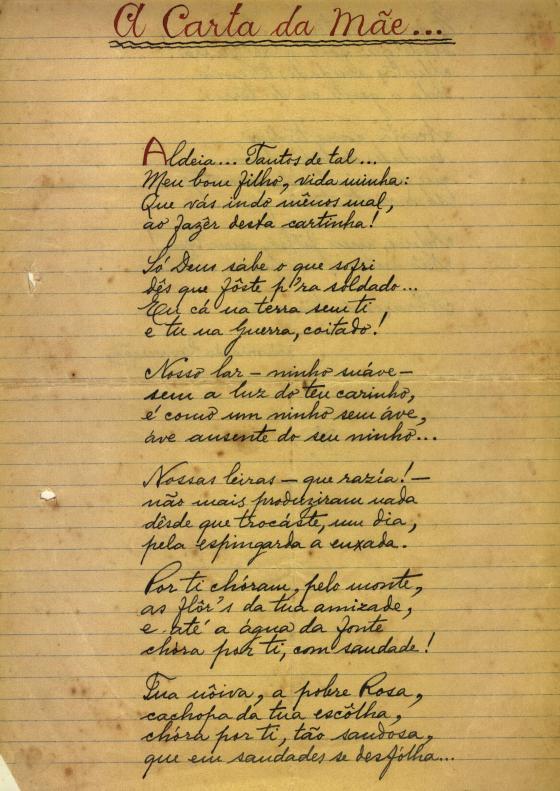 A Carta da Mãe...
Aldeia... Tantos de tal...
Meu bom filho, vida minha:
Que vás indo mênos mal,
ao fazêr desta cartinha!
Só Deus sábe o que sofri
dês que fôste p'ra soldado...
Eu cá na terra sem ti,
e tu na guerra, coitado!
Nosso lar – ninho suáve –
sem a luz do teu carinho,
é como um ninho sem áve,
áve ausente do seu ninho...
Nossas leiras – que razía! –
não mais produziram nada
dêsde que trocáste, um dia,
pela espingarda a enxada.
Por ti chóram, pelo monte,
as flôr's da tua amizade,
e até a água da fonte
chóra por ti, com saudade!
Tua nôiva, a pobre Rosa,
cachopa da tua escôlha,
chóra por ti, tão saudosa,
que em saudades se desfólha...